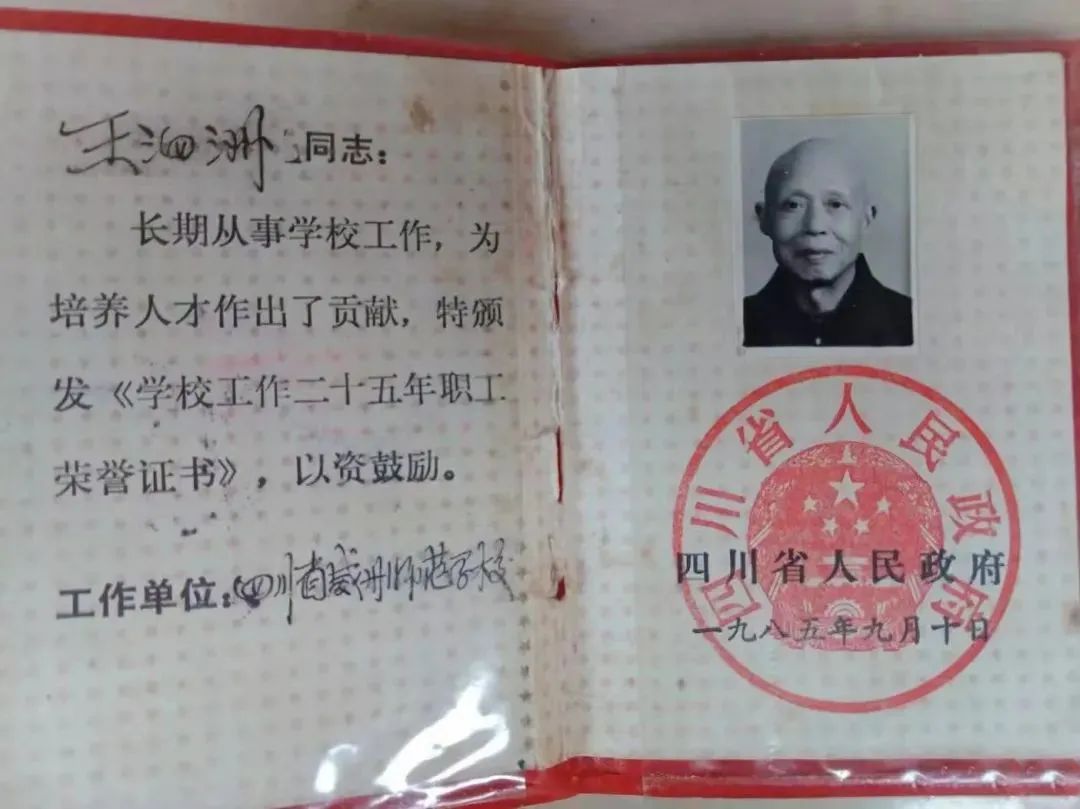 王泗洲同志：
长期从事学校工作，为
培养人才作出了贡献，特颁
发《学校工作二十五年职工
荣誉证书》，以资鼓励。
工作单位：四川省威州师范学校
四川省人民政府
四川省人民政府
一九八五年九月十日